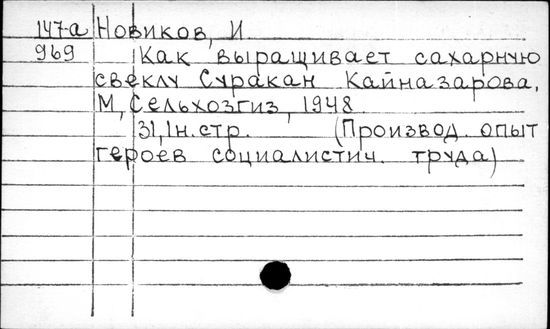 147-а Новиков, И.
969 Как выращивает сахарную
свеклу Суракан Кайназарова.
М, Сельхозгиз, 1948.
31, 1н. стр. (Производ. опыт
героев социалистич. труда)